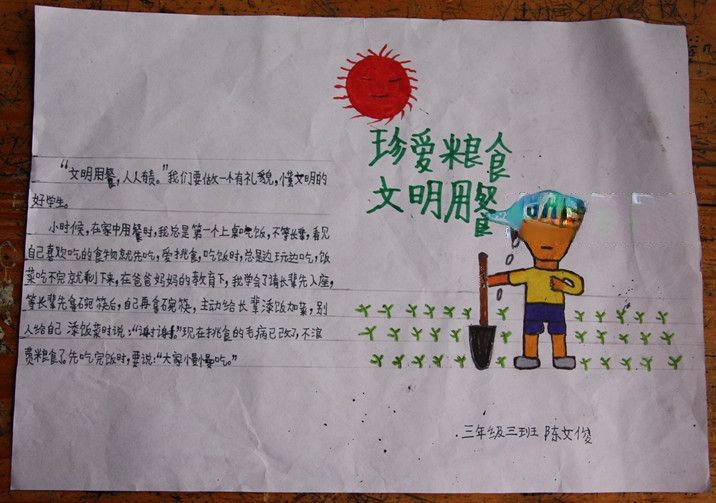 珍爱粮食
文明用餐
“文明用餐，人人有责。”我们要做一个有礼貌，懂文明的
好学生。
小时候，在家中用餐时，我总是第一个上桌吃饭，不等长辈，看见
自己喜欢吃的食物就先吃，爱挑食，吃饭时，总是边玩边吃，饭
菜吃不完就剩下来，在爸爸妈妈的教育下，我学会了请长辈先入座，
等长辈先拿碗筷后，自己再拿碗筷，主动给长辈添饭加菜，别
人给自己添饭菜时说：“谢谢”现在挑食的毛病已改了，不浪
费粮食了。先吃完饭时，要说：“大家慢慢吃。”
三年级三班 陈文俊